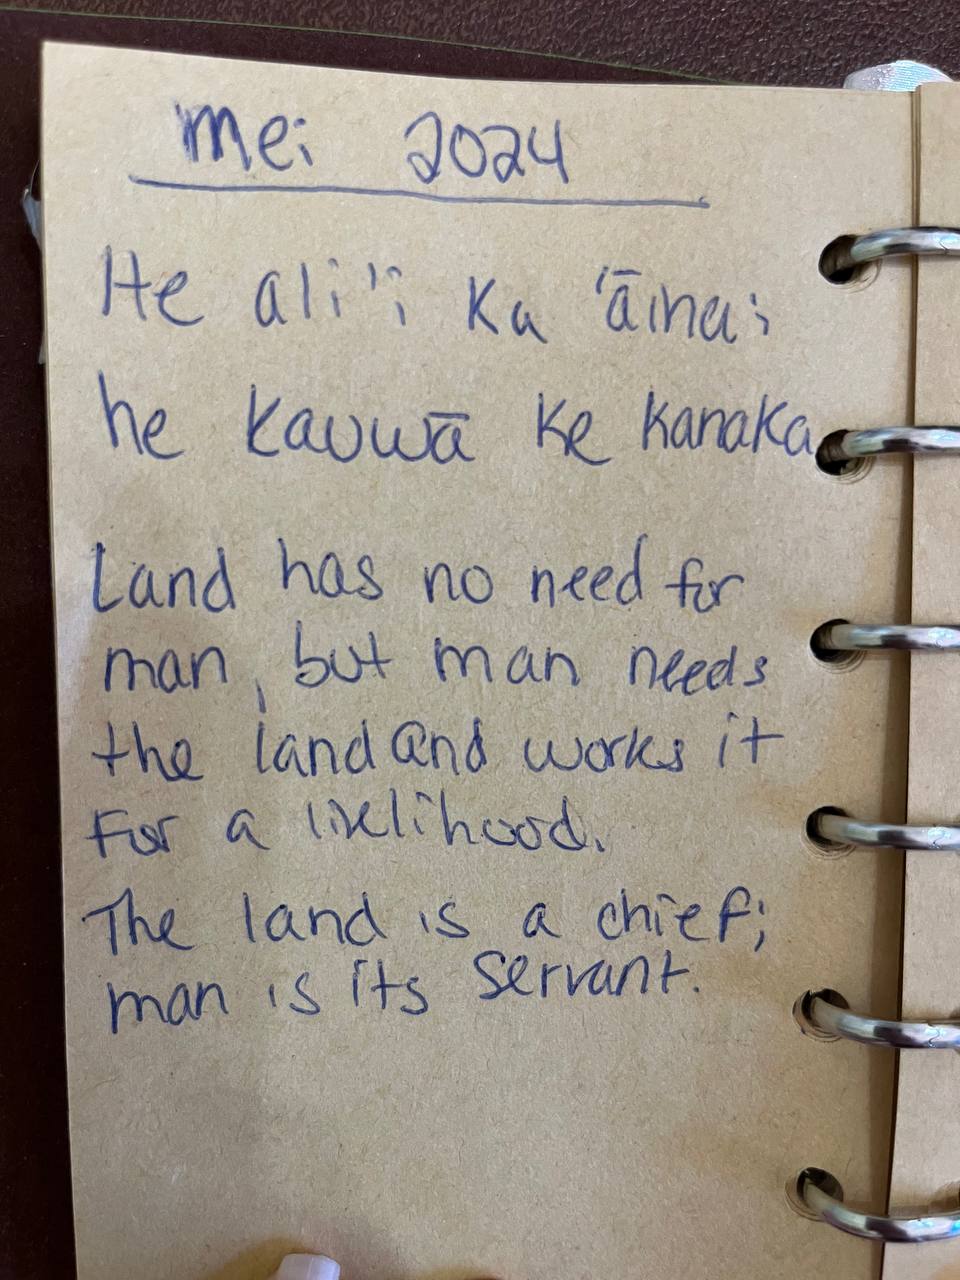 Mei 2024
He ali'i Ka 'āina;
he Kauwā Ke Kanaka
Land has no need for
man, but man needs
the land and works it
For a livelihood.
The land is a chief;
man is its servant.